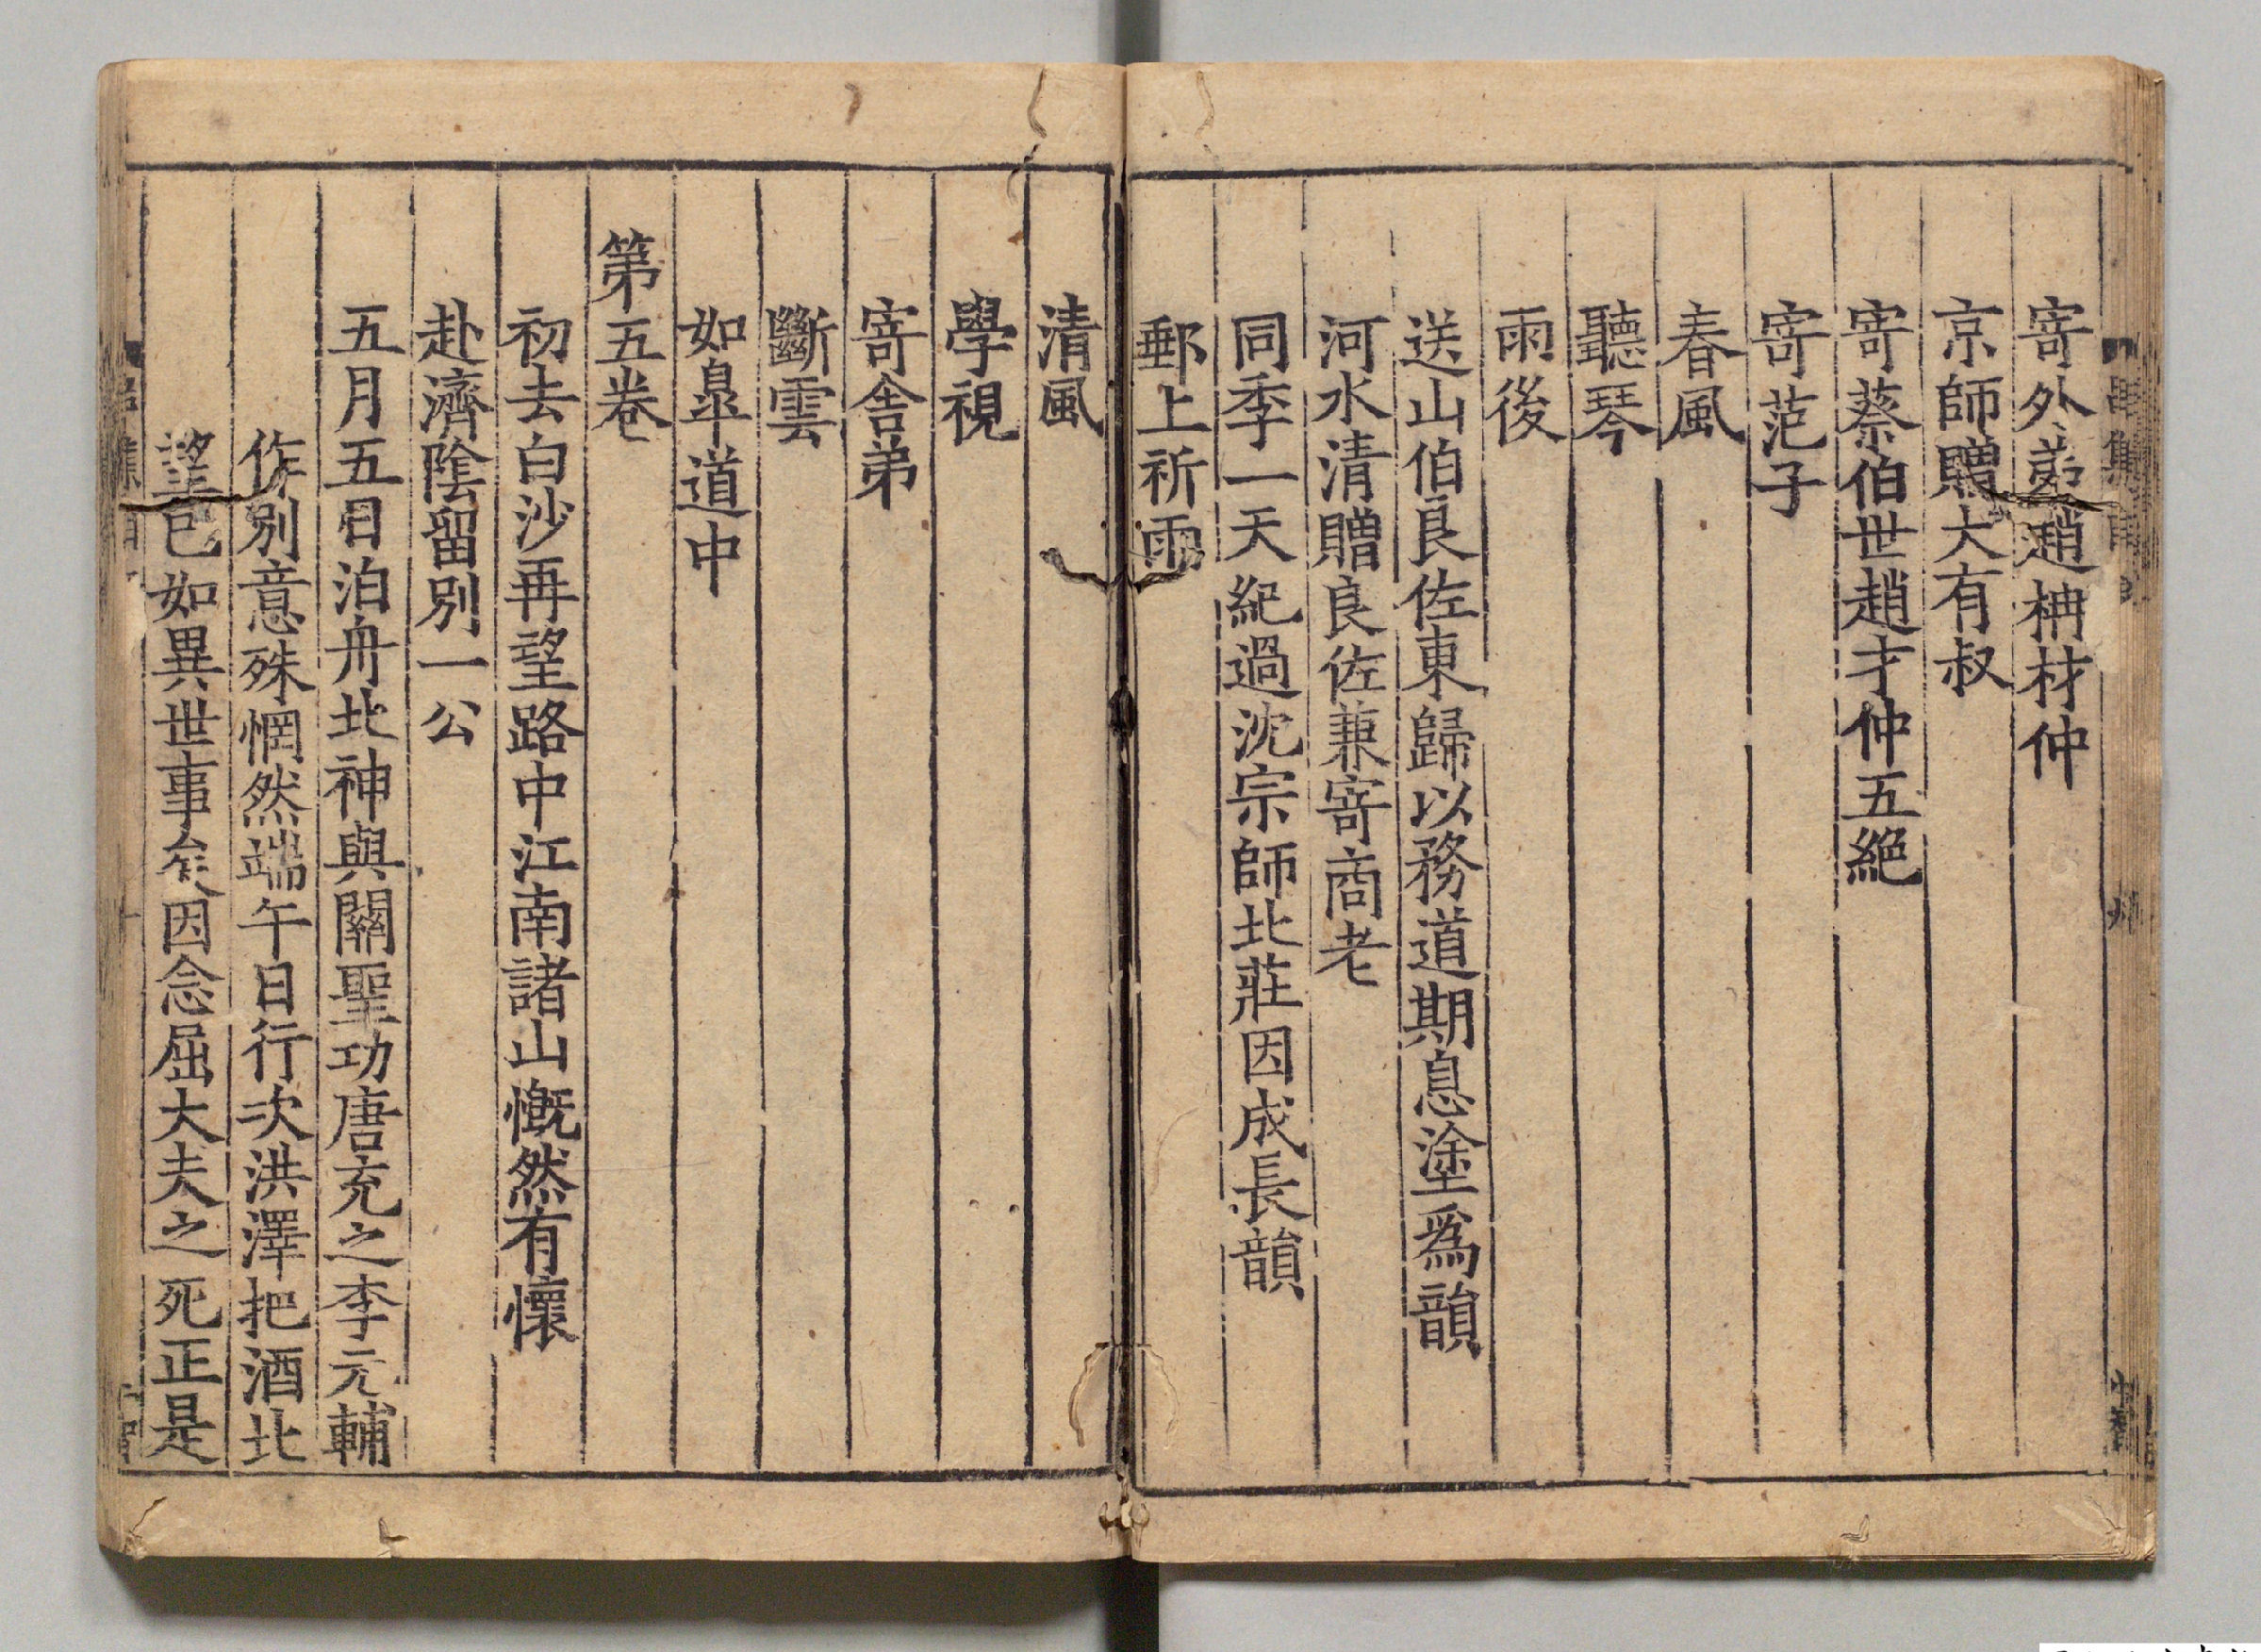 寄外弟趙柟材仲
京師贈大有叔
寄蔡伯世趙才仲五絶
寄范子
春風
聽琴
雨後
送山伯良佐東歸以務道期息塗爲韻
河水清贈良佐兼寄商老
同季一天紀過沈宗師北莊因成長韻
郵上祈雨
清風
學視
寄舎弟
斷雲
如臯道中
第五卷
初去白沙再望路中江南諸山慨然有懷
赴濟陰留別一公
五月五日泊舟北神與關聖功唐充之李元輔
作別意殊惘然端午日行次洪澤把酒北
望已如異世事矣因念屈大夫之死正是